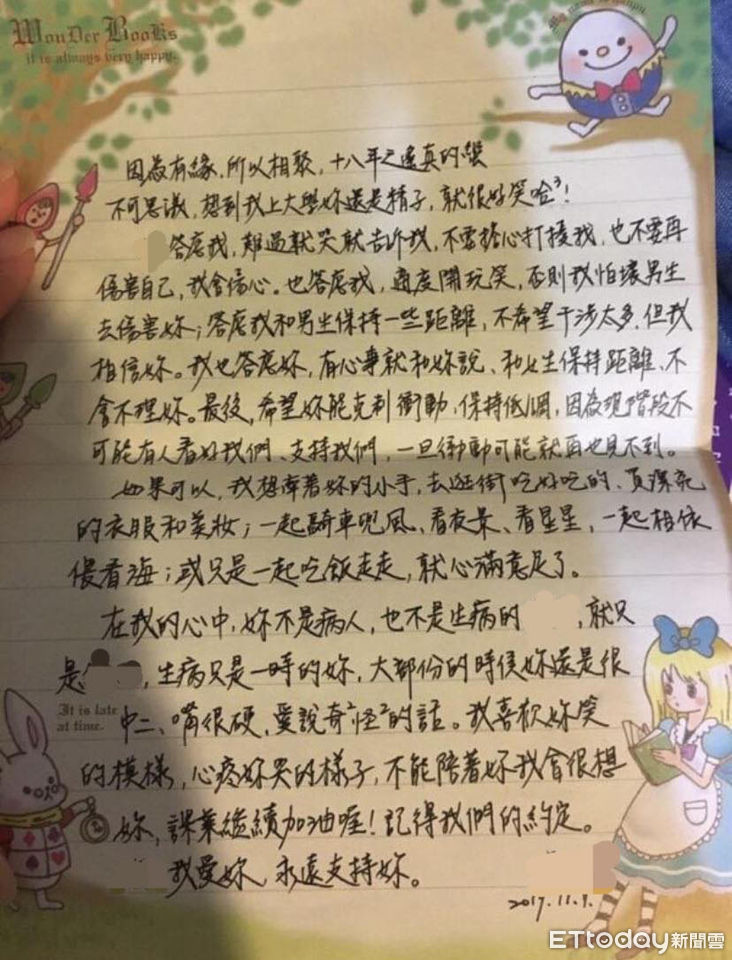 WonDer Books
it is always very happy.
因為有緣，所以相聚，十八年之遙真的蠻
不可思議，想到我上大學妳還是精子，就很好笑哈³！
答應我，難過就哭就告訴我，不要擔心打擾我，也不要再
傷害自己，我會傷心。也答應我，適度開玩笑，否則我怕壞男生
去傷害妳；答應我和男生保持一些距離，不希望干涉太多，但我
相信妳。我也答應妳，有心事就和妳說、和女生保持距離、不
會不理妳。最後，希望妳能克制衝動，保持低調，因為現階段不
可能有人看好我們、支持我們，一旦衝動可能就再也見不到。
如果可以，我想牽著妳的小手，去逛街吃好吃的、買漂亮
的衣服和美妝；一起騎車兜風、看夜景、看星星，一起相依
偎看海；或只是一起吃飯走走，就心滿意足了。
在我的心中，妳不是病人，也不是生病的，就只
是，生病只是一時的妳，大部份的時候妳還是很
It is late
at time.
中二、嘴很硬，愛說奇²怪²的話。我喜歡妳笑
的模樣，心疼妳哭的樣子，不能陪著妳我會很想
妳，課業繼續加油喔！記得我們的約定。
我愛妳，永遠支持妳。
2017.11.9.
ETtoday新聞雲